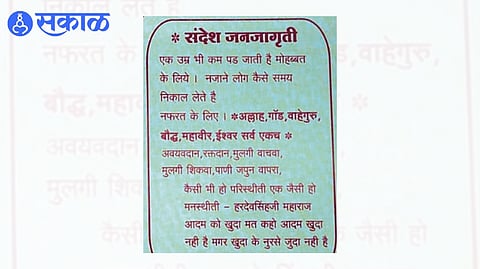 सकाळ
* संदेश जनजागृती
एक उम्र भी कम पड जाती है मोहब्बत
के लिये । नजाने लोग कैसे समय
निकाल लेते है
नफरत के लिए । *अल्लाह,गॉड,वाहेगुरु,
बौद्ध,महावीर,ईश्वर सर्व एकच *
अवयवदान,रक्तदान,मुलगी वाचवा,
मुलगी शिकवा,पाणी जपुन वापरा,
कैसी भी हो परिस्थीती एक जैसी हो
मनस्थीती - हरदेवसिंहजी महाराज
आदम को खुदा मत कहो आदम खुदा
नही है मगर खुदा के नुरसे जुदा नही है